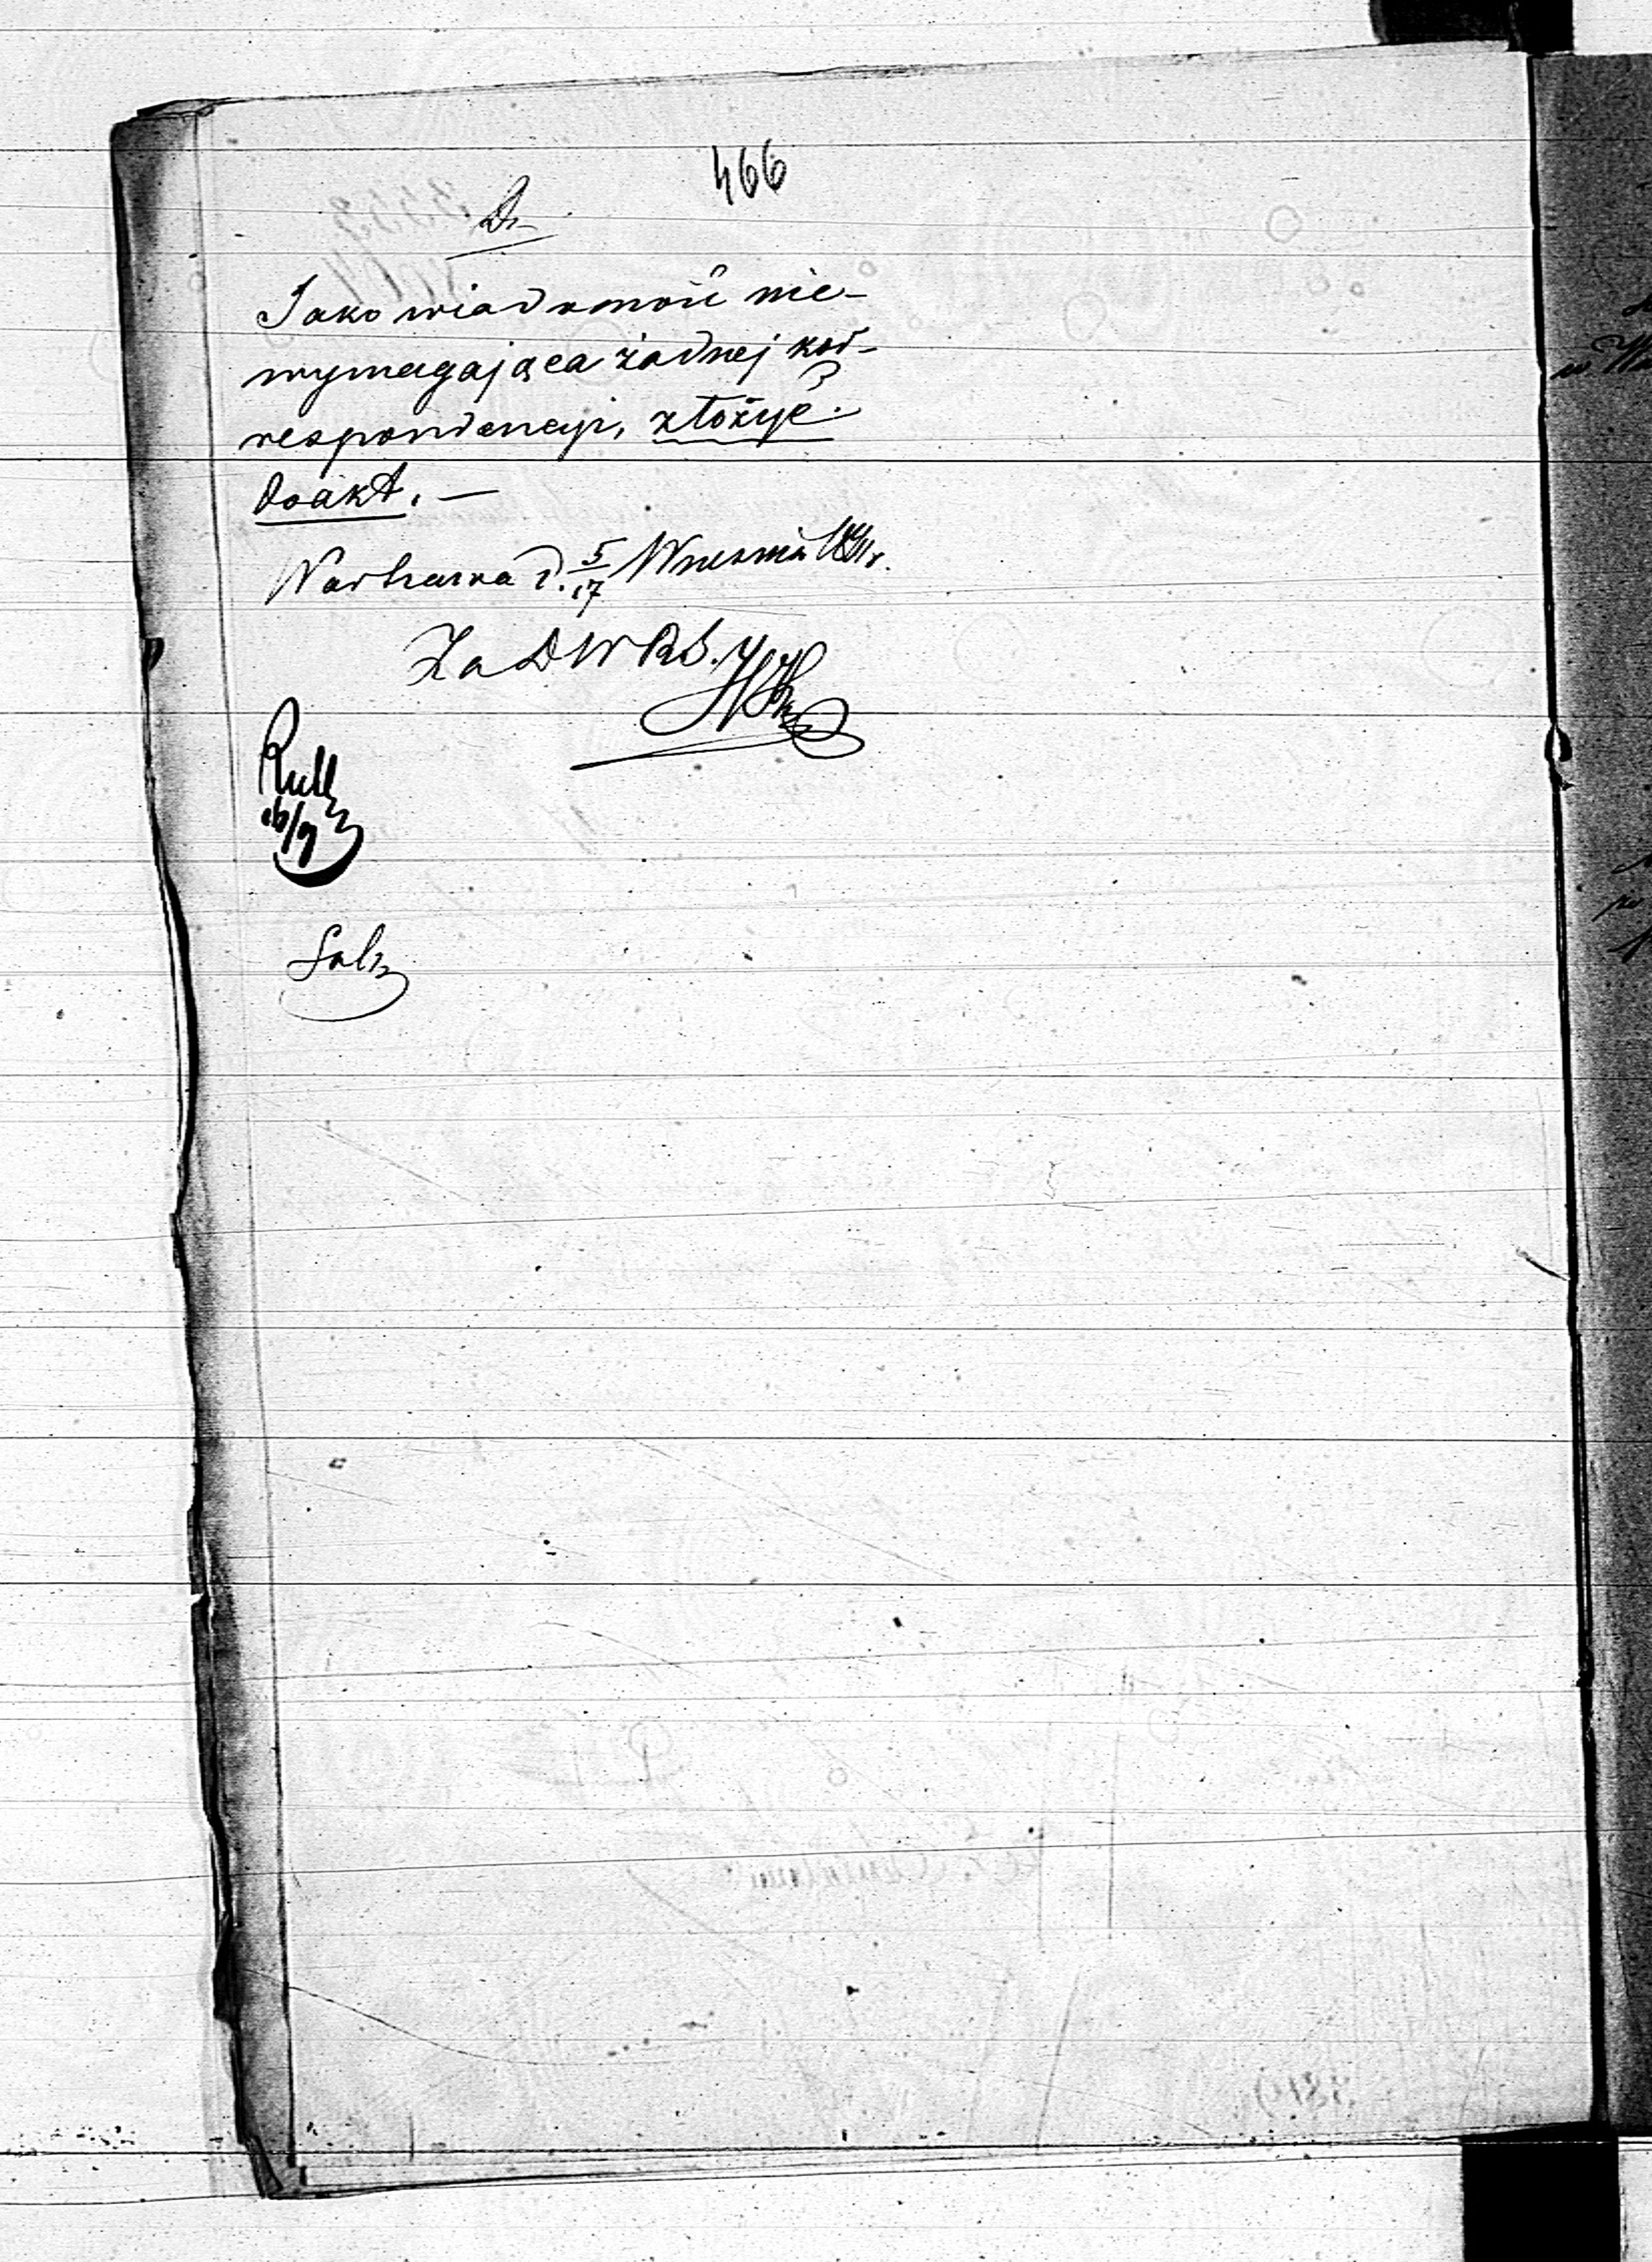 466
Jako wiadomość nie-
wymagająca żadnej kor-
respondencji, złożyć
do akt. —
Warszawa d. 5/17 Września
Za D W
16/9